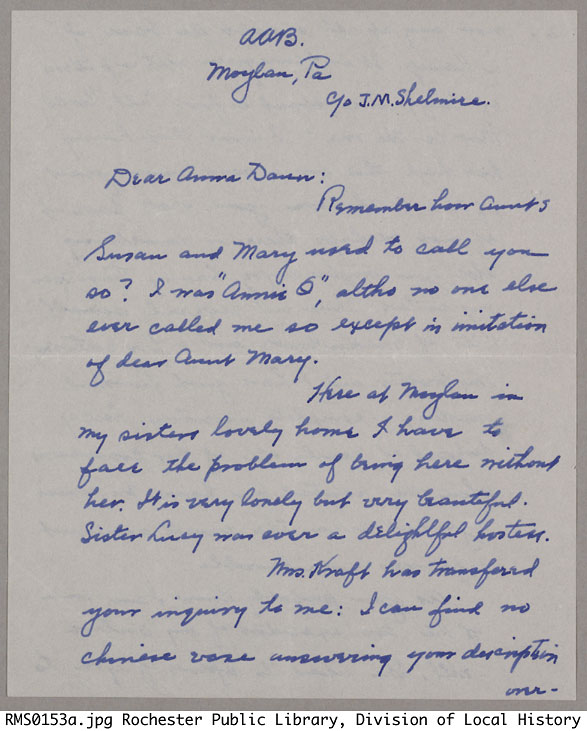 AAB.
Moylan, Pa
c/o J.M. Shelmire.
Dear Anna Dann:
Remember how Aunts
Susan and Mary used to call you
so? I was "Annie B", altho no one else
ever called me so except in imitation
of dear Aunt Mary.
Here at Moylan in
my sisters lovely home I have to
face the problem of being here without
her. It is very lonely but very beautiful.
Sister Lucy was ever a delightful hostess.
Mrs. Kraft has transfered
your inquiry to me: I can find no
chinese vase answering your description
over-
RMS0153a.jpg Rochester Public Library, Division of Local History